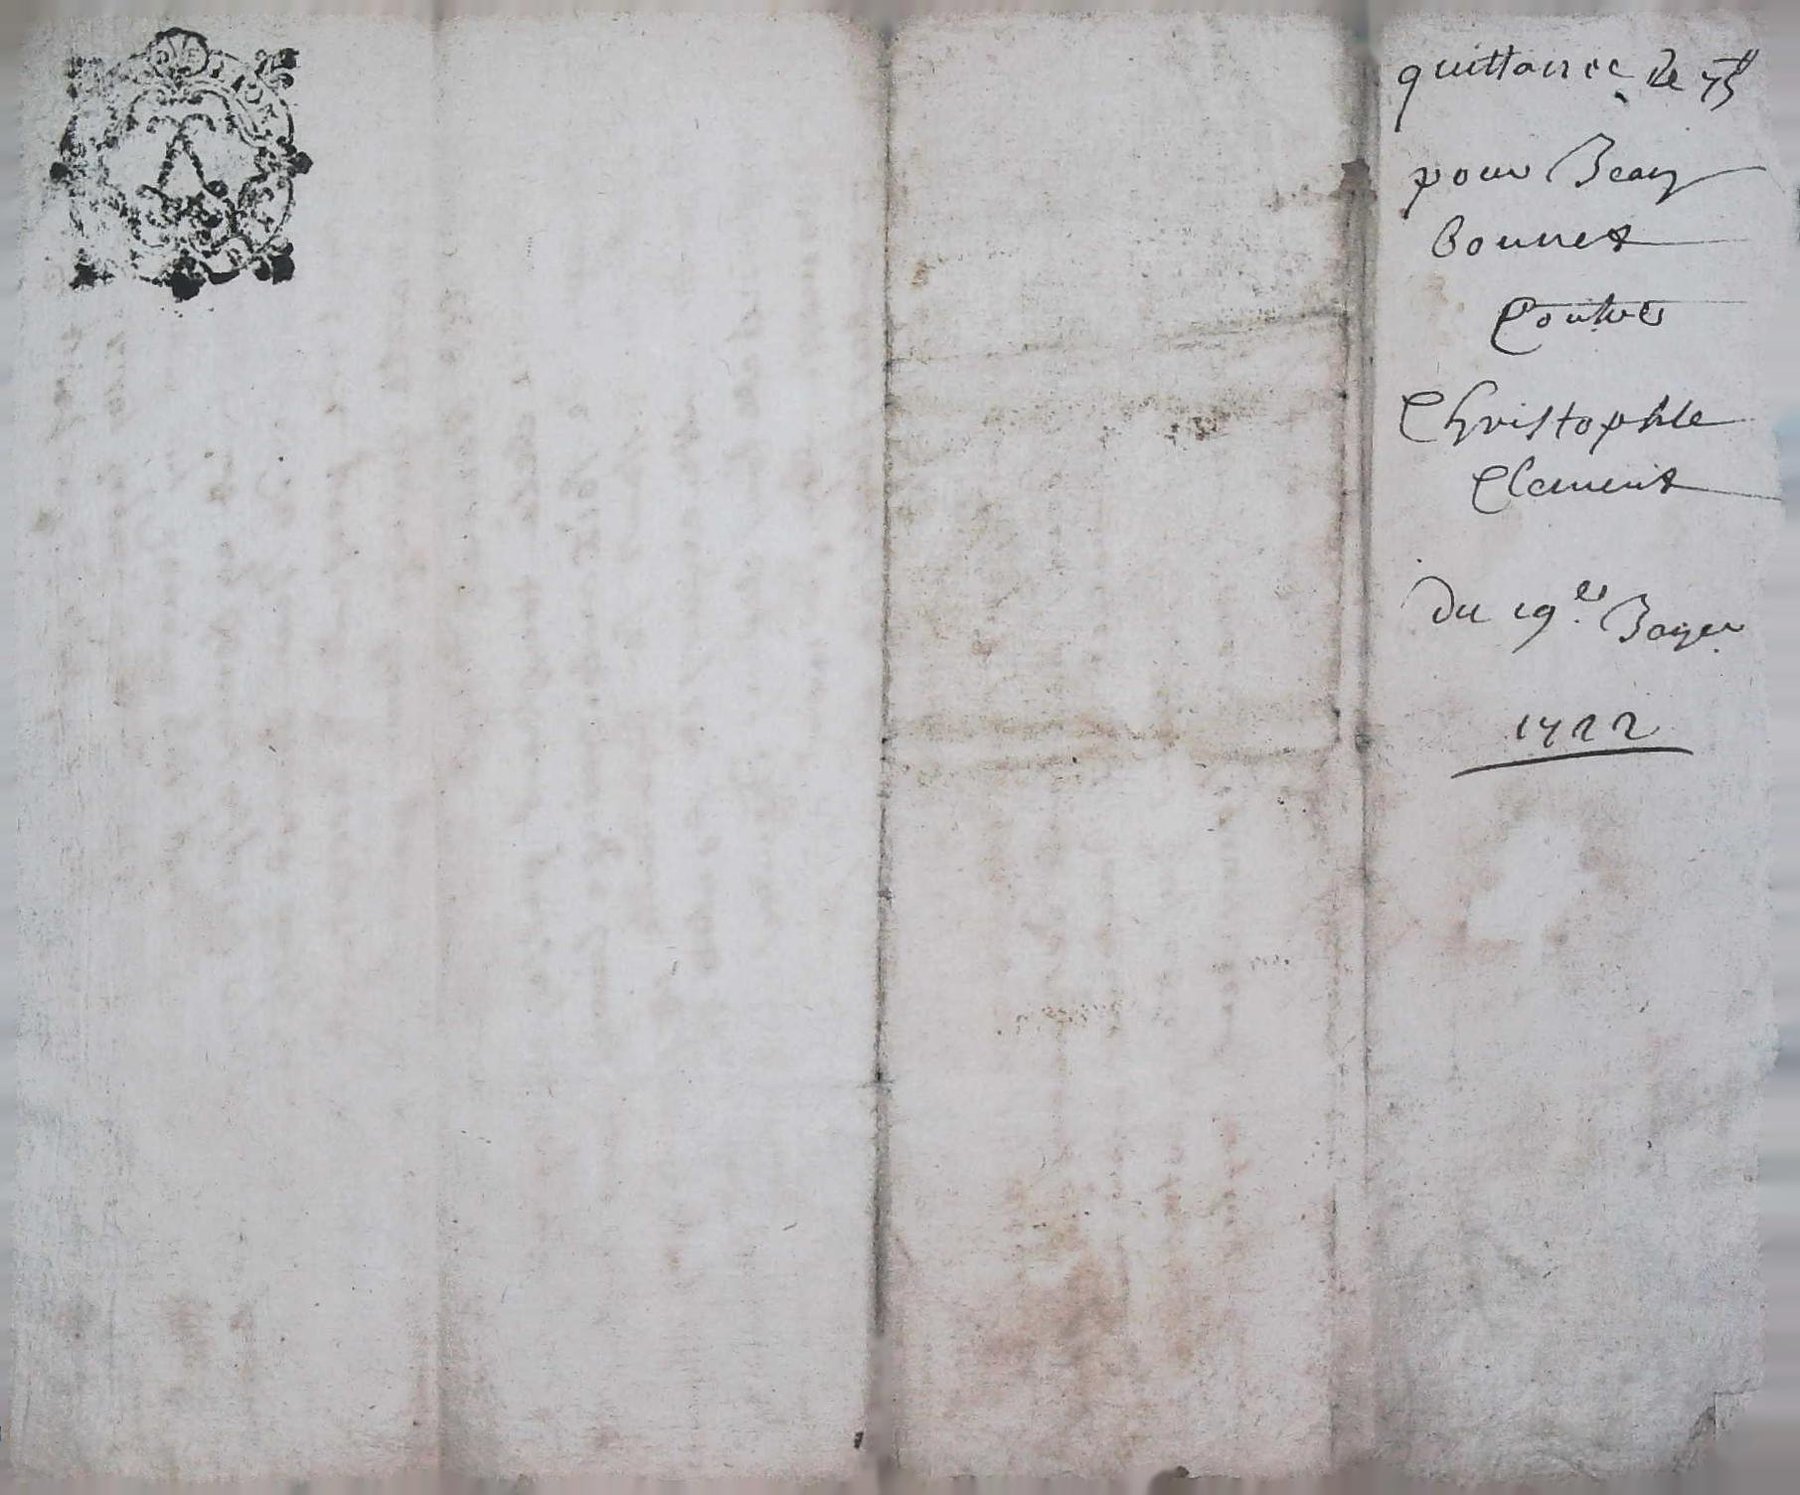 quittance de 75ˡᵗ
pour Jean
bonnet
Contre
Christophle
Clement
du 19.ᵉʳ Boyer
1722